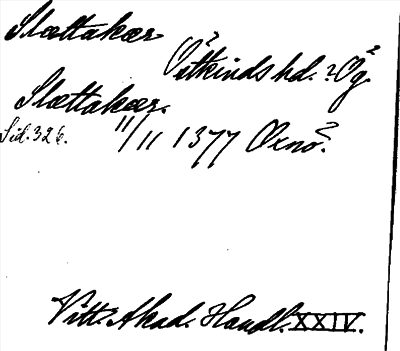 Slættakær
Östkinds hd. ? Ög.
Slættakær.
Sid. 326. 11/11 1377 Örnö?.
Vitt. Akad. Handl. XXIV.